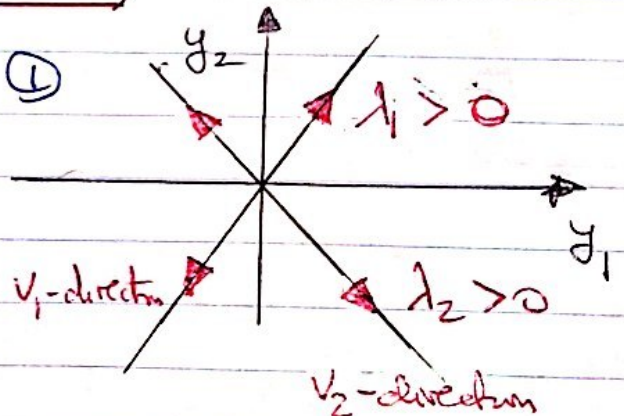 ①
y₂
λ₁ > 0
y₁
v₁-direction
λ₂ > 0
v₂-direction